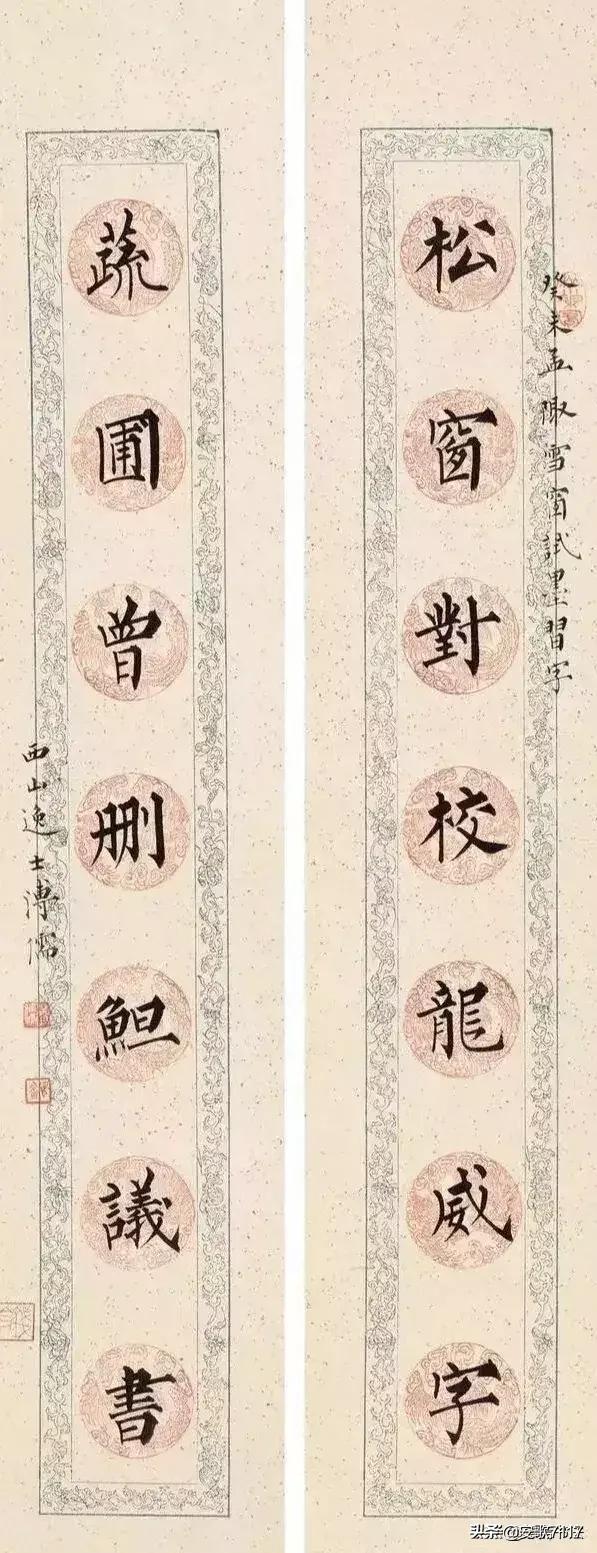 癸未孟陬雪窗試墨習字
松窗對校龍威字
蔬圃曾删䱇議書
西山逸士溥儒
头条